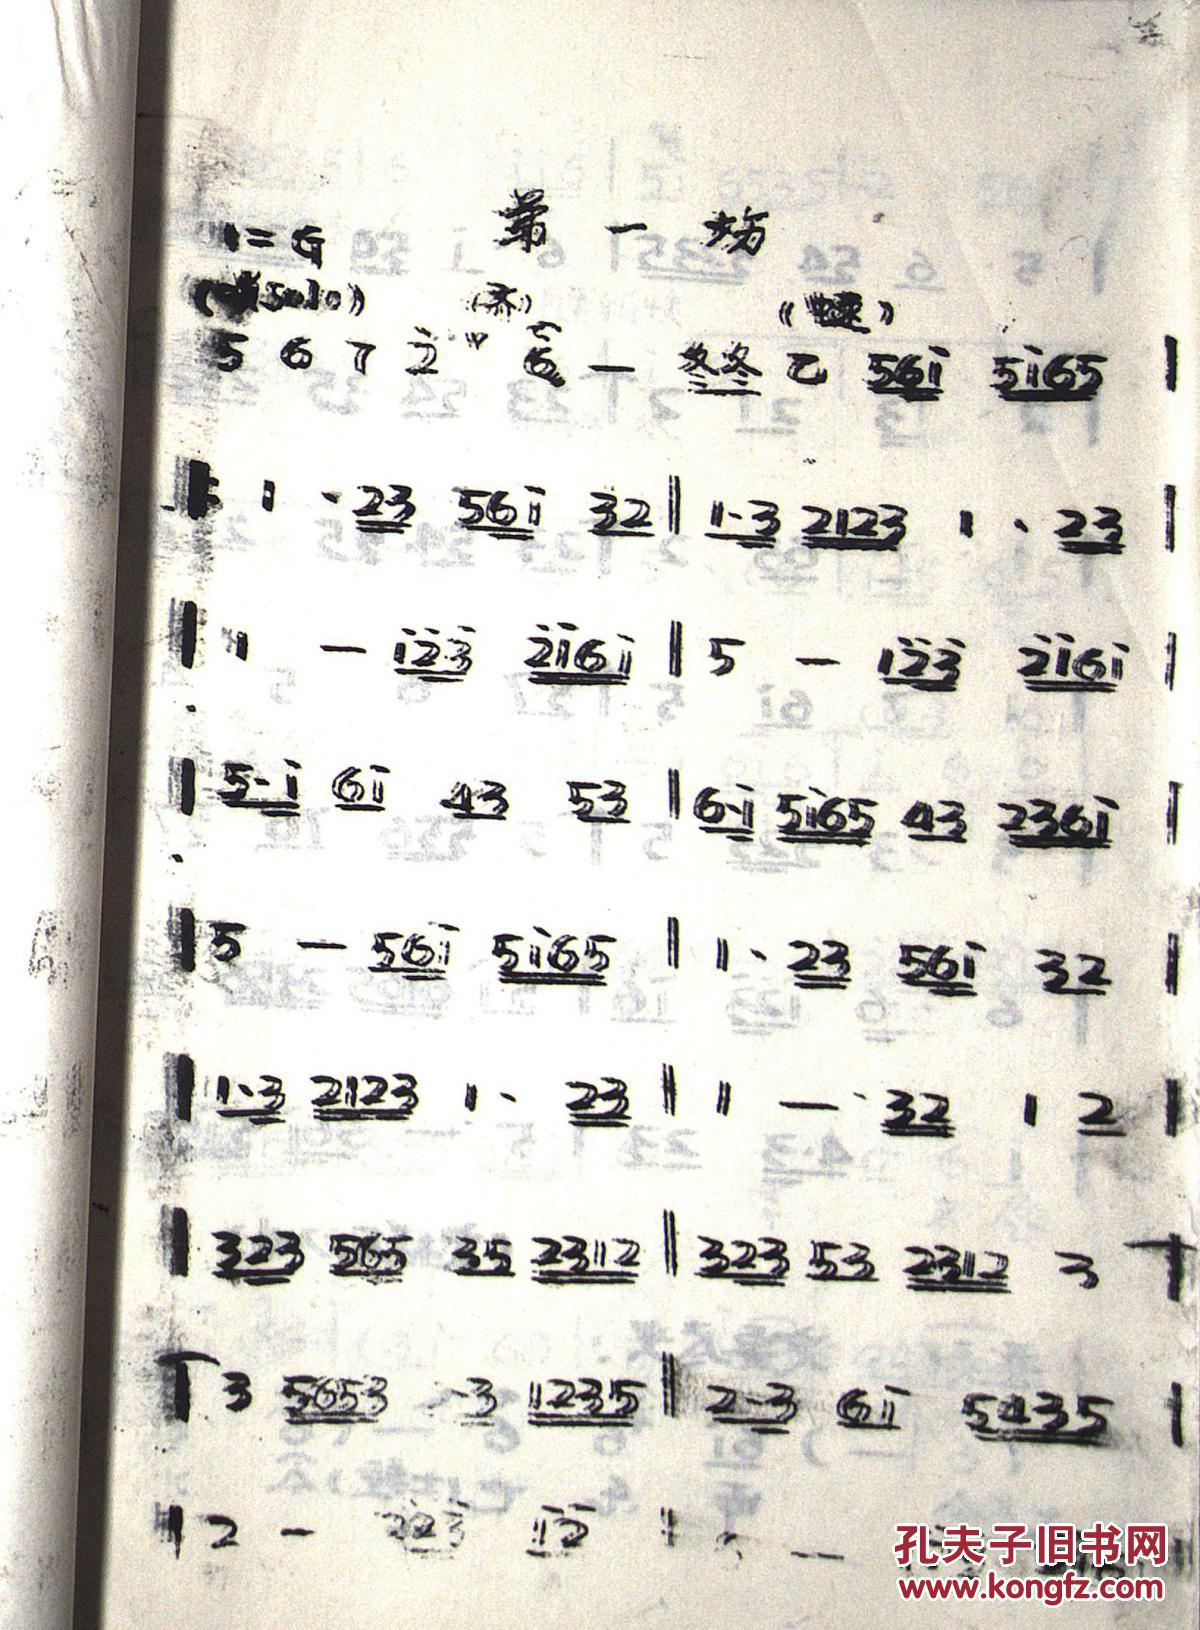 1=G 第一场
(Solo) (齐)
5 6 7 2̇ 6̇ — 冬冬 乙 5 6 i 5 i 6 5 |
1 · 23 56i 32 | 1·3 2123 1 · 23 |
| 1 — i2̇3̇ 2̇i6i | 5 — i2̇3̇ 2̇i6i |
| 5·i 6i 43 53 | 6·i 5i65 43 236i |
| 5 — 56i 5i65 | 1· 23 56i 32 |
| 1·3 2123 1· 23 | 1 — ·32 1 2 |
| 323 565 35 2312 | 323 53 2312 3 |
| 3 5653 ·3 1235 | 2·3 6i 5435 |
| 2 — 2̇2̇3̇ i2̇ | —
孔夫子旧书网
www.kongfz.com